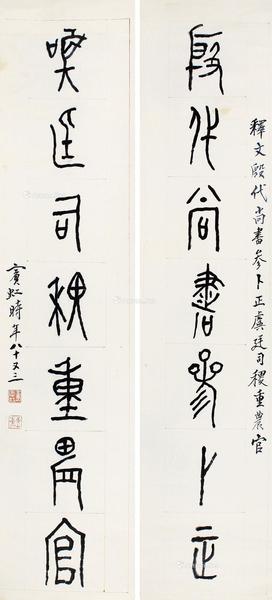 殷代尚書參卜正
釋文殷代尚書參卜正虞廷司稷重農官
虞廷司稷重農官
賓虹時年八十又三